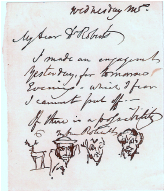 Wednesday
My dear Dr Roberts
I made an engagement
Yesterday, for tomorrow
Evening – which I fear
I cannot put off –
If there is a possibility